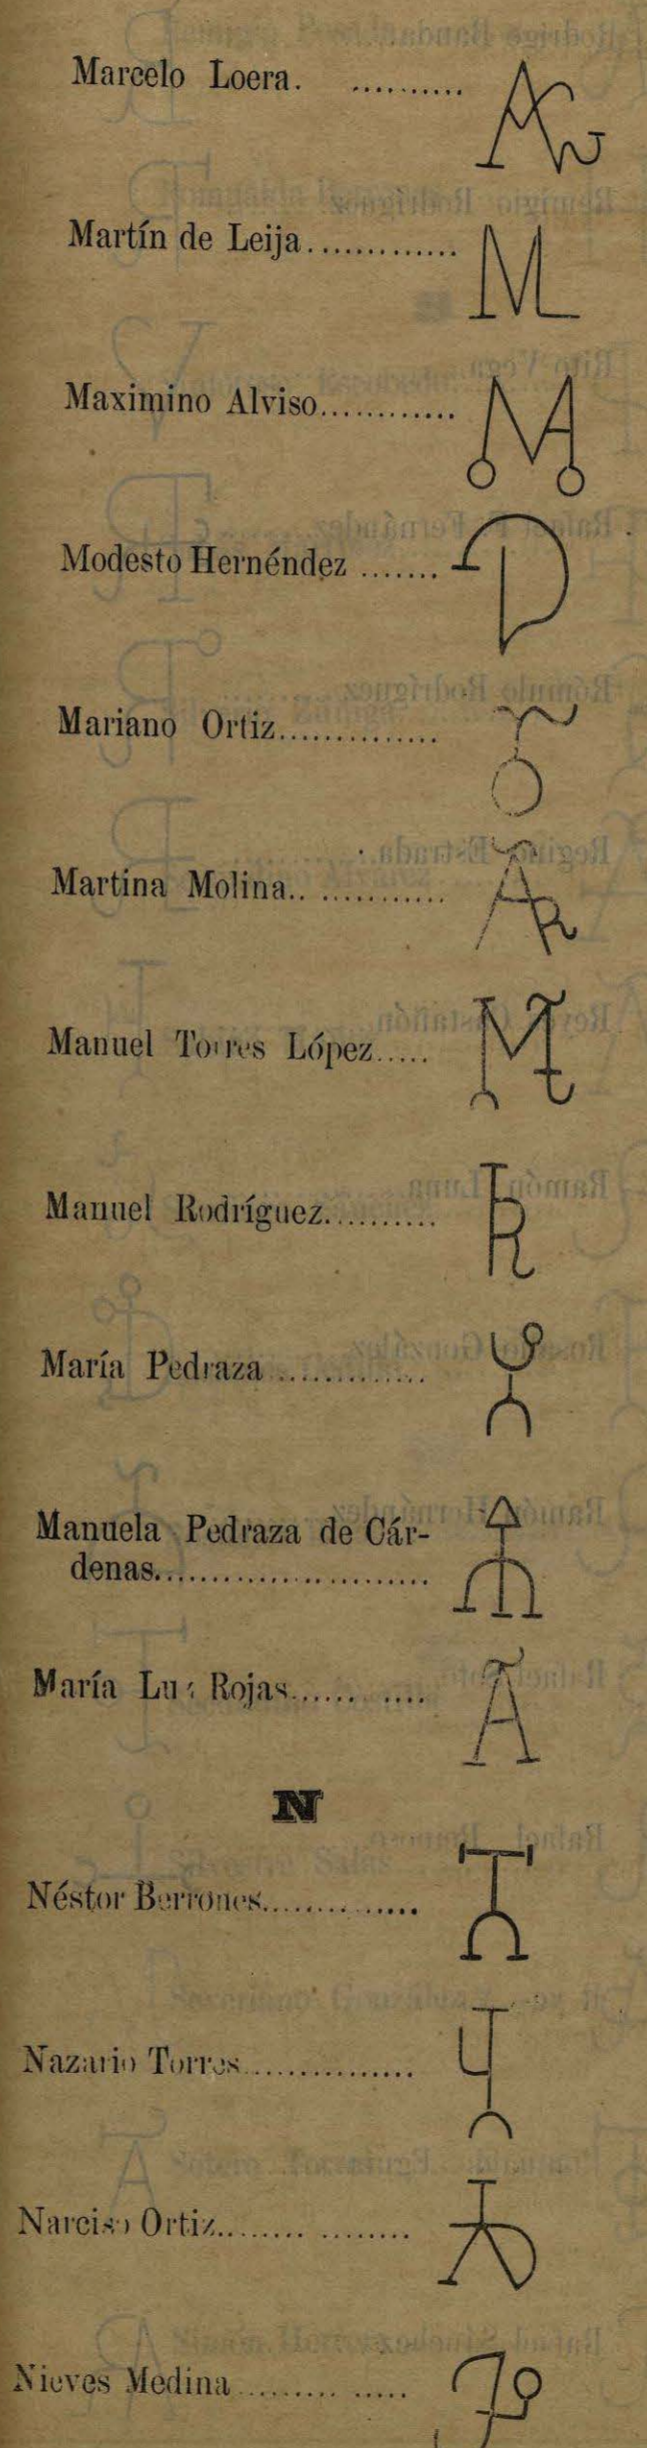 Marcelo Loera. ..........
Martín de Leija.............
Maximino Alviso............
Modesto Hernéndez .......
Mariano Ortiz..............
Martina Molina.. ...........
Manuel Torres López.....
Manuel Rodríguez..........
María Pedraza .............
Manuela Pedraza de Cár-
denas........................
María Luz Rojas...... ....
N
Néstor Berrones..............
Nazario Torres...............
Narciso Ortiz........ ........
Nieves Medina ......... .....